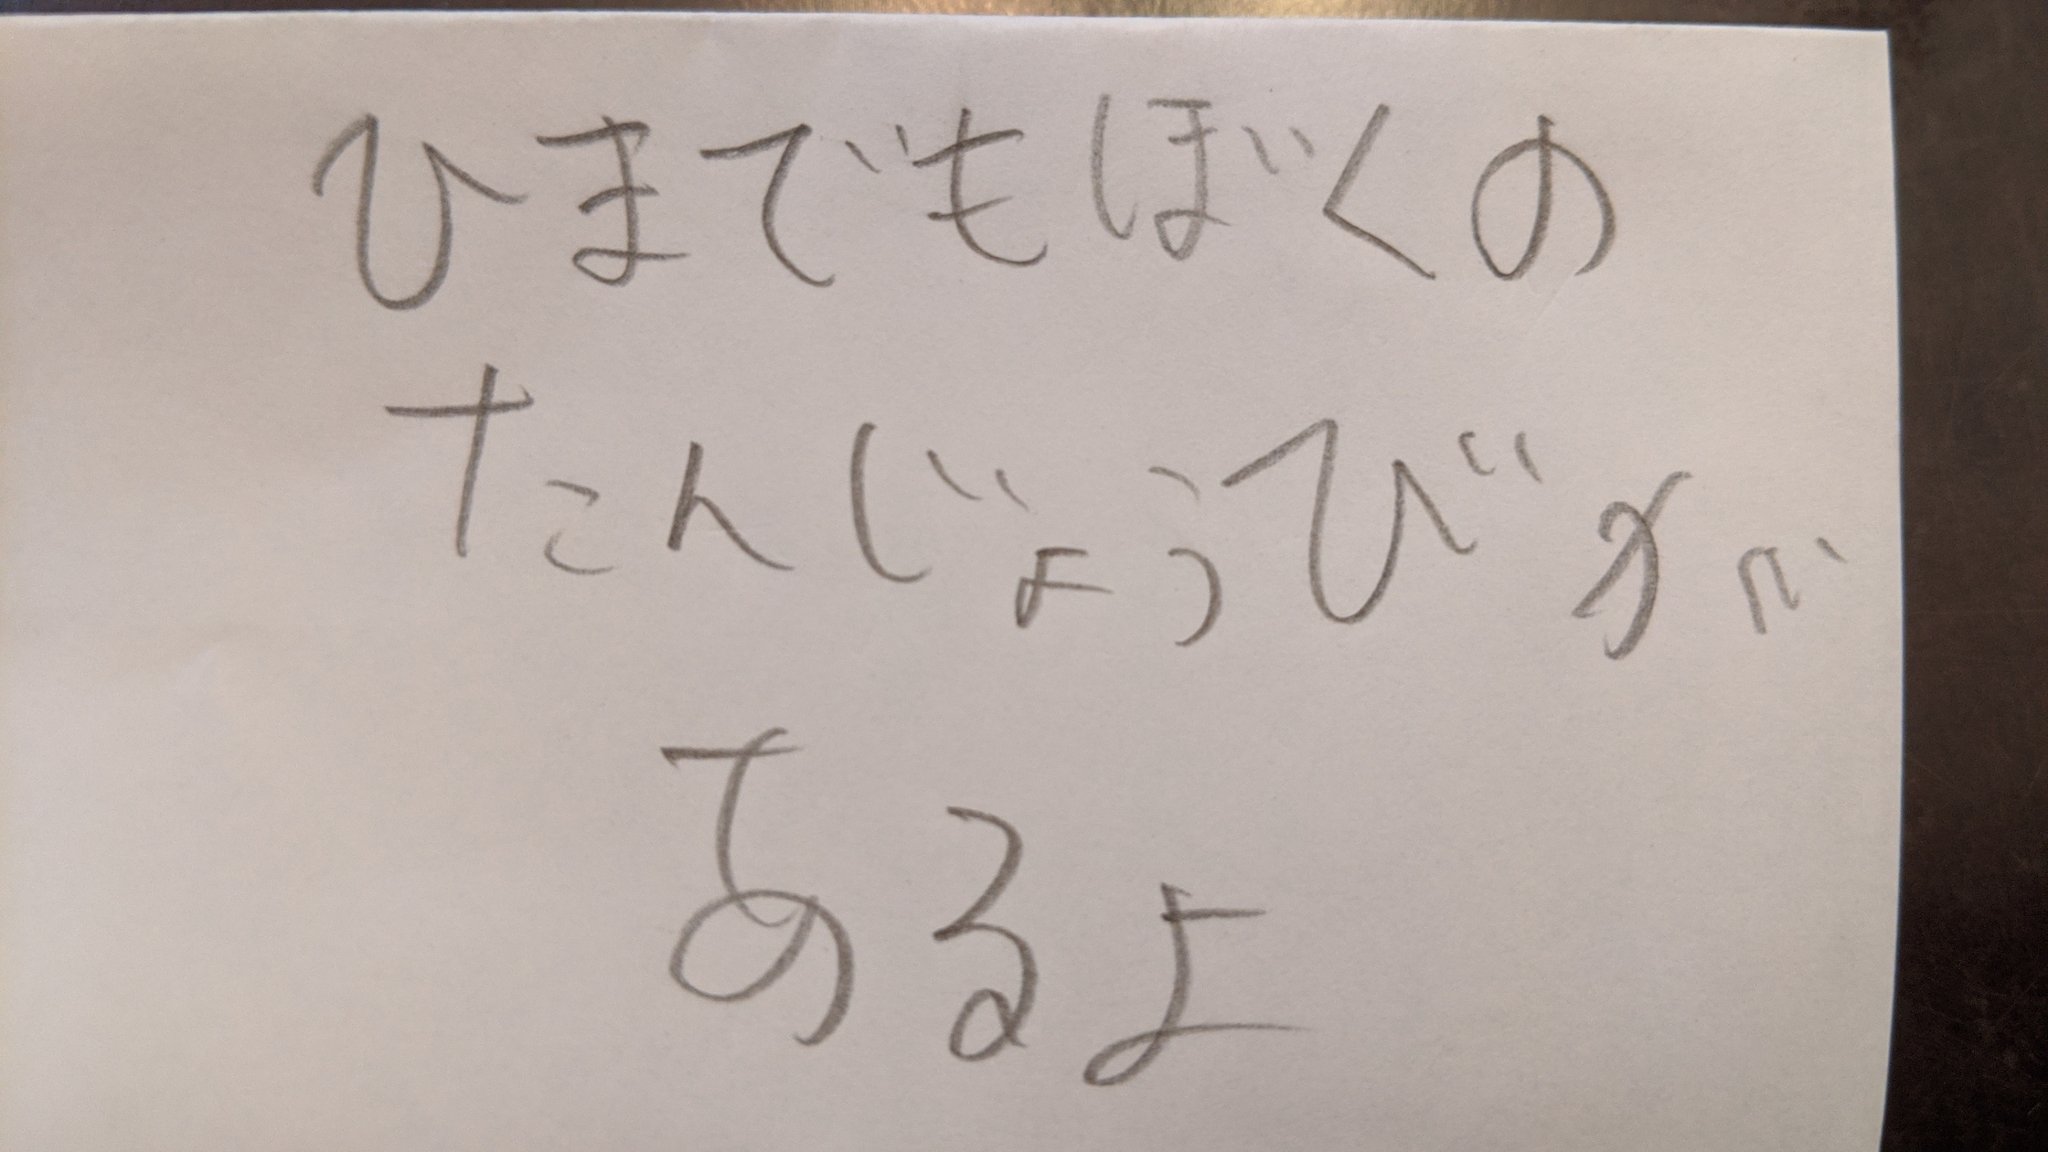 ひまでもぼくの
たんじょうびが
あるよ